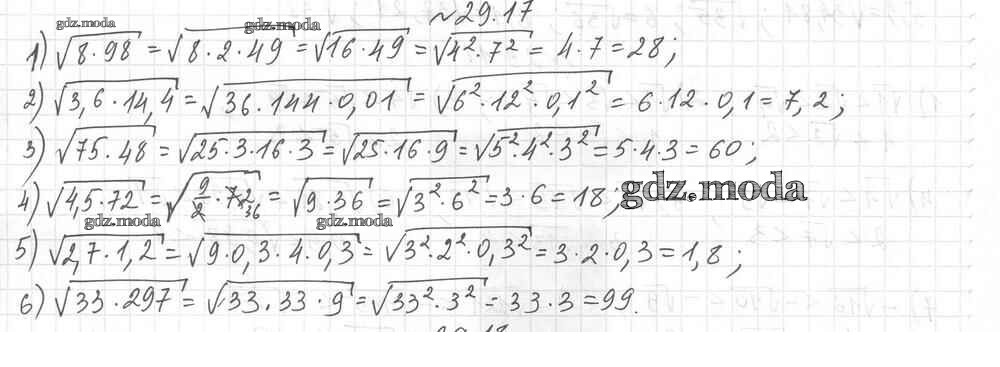 №29.17
gdz.moda gdz.moda
1) √8·98 = √8·2·49 = √16·49 = √4²·7² = 4·7 = 28;
2) √3,6·14,4 = √36·144·0,01 = √6²·12²·0,1² = 6·12·0,1 = 7,2;
3) √75·48 = √25·3·16·3 = √25·16·9 = √5²·4²·3² = 5·4·3 = 60;
4) √4,5·72 = √9/2·72 36 = √9·36 = √3²·6² = 3·6 = 18;
gdz.moda
gdz.moda gdz.moda
5) √2,7·1,2 = √9·0,3·4·0,3 = √3²·2²·0,3² = 3·2·0,3 = 1,8;
6) √33·297 = √33·33·9 = √33²·3² = 33·3 = 99.